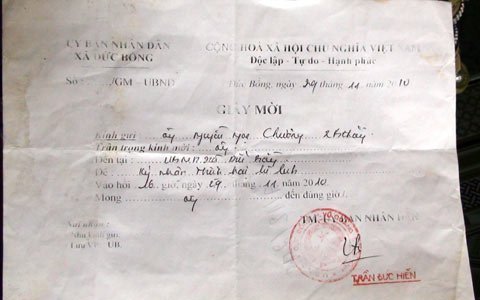 UỶ BAN NHÂN DÂN
XÃ ĐỨC BỒNG
CỘNG HOÀ XÃ HỘI CHỦ NGHĨA VIỆT NAM
Độc lập - Tự do - Hạnh phúc
Số : ..../GM - UBND
Đức Bồng, ngày 29 tháng 11 năm 2010
GIẤY MỜI
Kính gửi : ông Nguyễn Chương
Trân trọng kính mời : ông
Đến tại : UBND xã Đức Bồng
Để :
Vào hồi : 16 giờ, ngày 29 tháng 11 năm 2010.
Mong đến đúng giờ./.
Nơi nhận :
Như kính gửi.
Lưu VP - UB.
TM. UỶ BAN NHÂN DÂN
TRẦN ĐỨC HIỀN